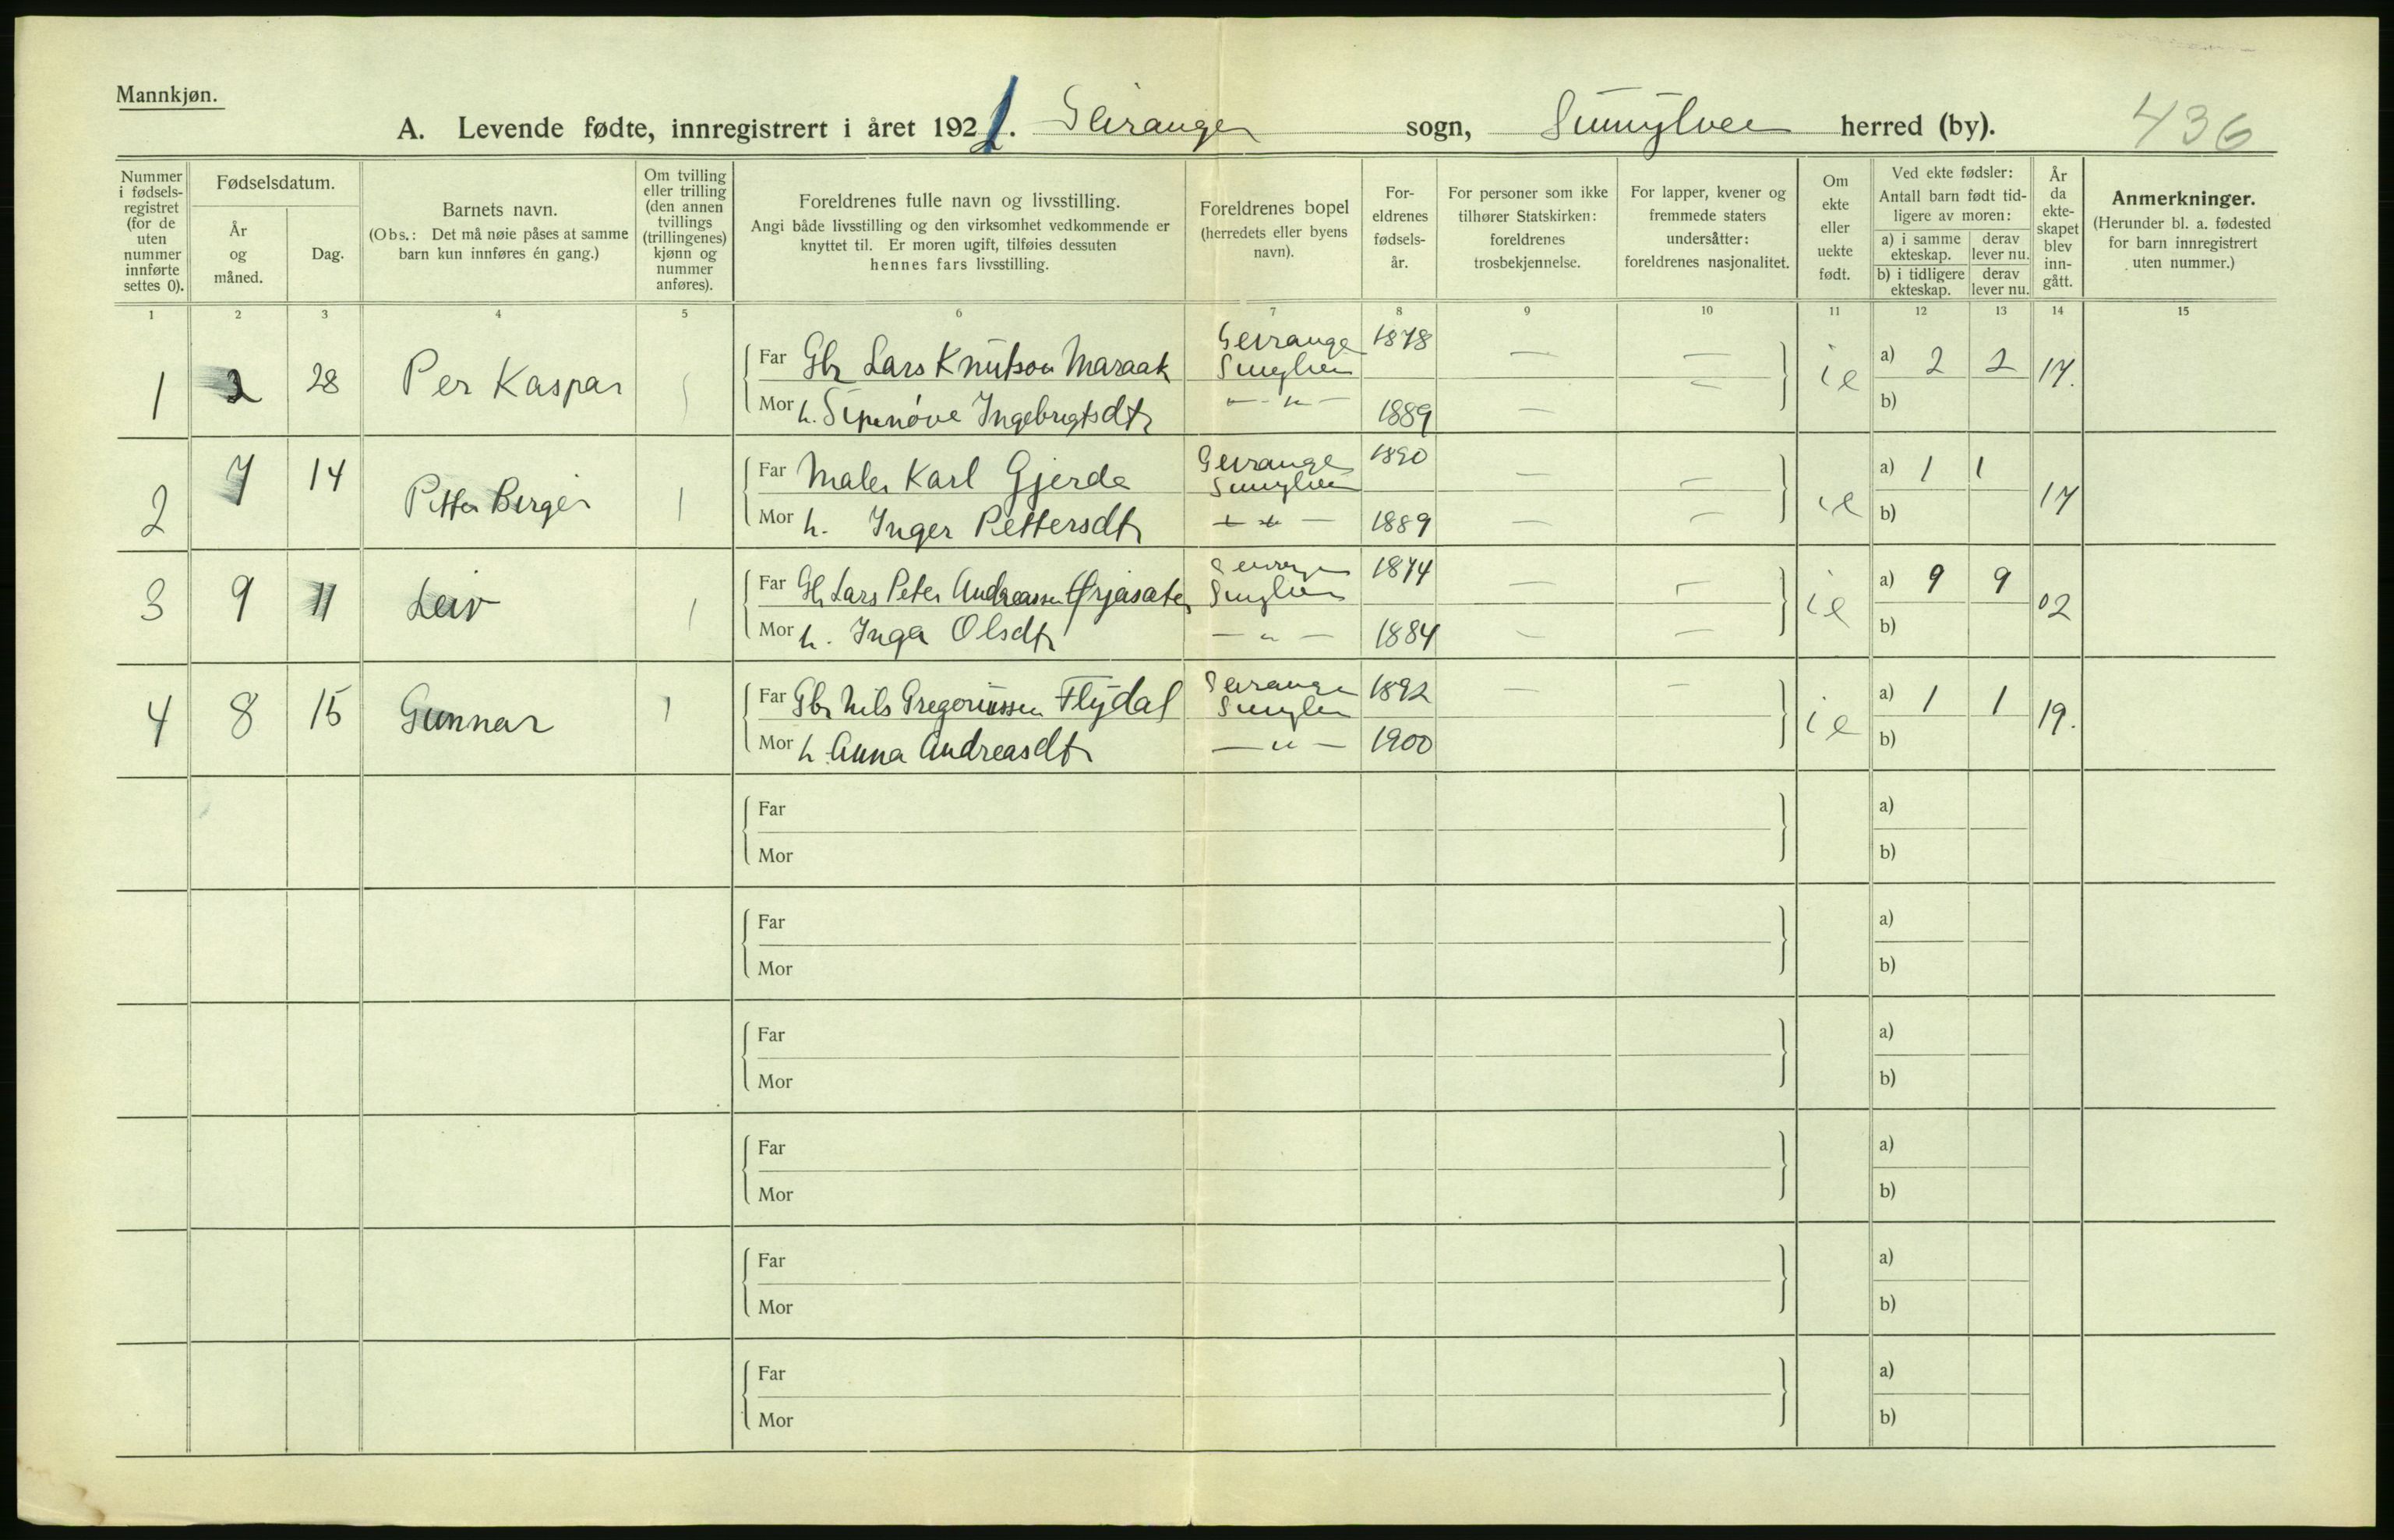 Mannkjøn.
A. Levende fødte, innregistrert i året 1921. Geiranger sogn, Sunnylven herred (by). 436
Nummer i fødselsregistret (for de uten nummer innførte settes 0).
Fødselsdatum.
År og måned.
Dag.
Barnets navn.
(Obs.: Det må nøie påses at samme barn kun innføres én gang.)
Om tvilling eller trilling (den annen tvillings (trillingenes) kjønn og nummer anføres).
Foreldrenes fulle navn og livsstilling.
Angi både livsstilling og den virksomhet vedkommende er knyttet til. Er moren ugift, tilføies dessuten hennes fars livsstilling.
Foreldrenes bopel (herredets eller byens navn).
Foreldrenes fødselsår.
For personer som ikke tilhører Statskirken: foreldrenes trosbekjennelse.
For lapper, kvener og fremmede staters undersåtter: foreldrenes nasjonalitet.
Om ekte eller uekte født.
Ved ekte fødsler:
Antall barn født tidligere av moren:
a) i samme ekteskap.
derav lever nu.
b) i tidligere ekteskap.
derav lever nu.
År da ekteskapet blev inngått.
Anmerkninger.
(Herunder bl. a. fødested for barn innregistrert uten nummer.)
1 2 3 4 5 6 7 8 9 10 11 12 13 14 15
1 2 28 Per Kaspar
Far Gbr Lars Knutson Maraak Geirange Sunylven 1878 — — ie a) 2 2 17.
Mor h. Synnøve Ingebrigtsdtr — " — 1889 — — b)
2 7 14 Petter Birger 1
Far Maler Karl Gjerde Geirange Sunylven 1890 — — ie a) 1 1 17
Mor h. Inger Pettersdtr — " — 1889 — — b)
3 9 11 Leiv 1
Far Gbr Lars Peter Andreassen Ørjasæter Sunylven 1874 — — ie a) 9 9 02
Mor h. Inga Olsdtr — " — 1884 — — b)
4 8 15 Gunnar 1
Far Gbr Nils Gregoriussen Flydal Geirange Sunylven 1892 — — ie a) 1 1 19.
Mor h. Anna Andreasdtr — " — 1900 b)
Far a)
Mor b)
Far a)
Mor b)
Far a)
Mor b)
Far a)
Mor b)
Far a)
Mor b)
Far a)
Mor b)